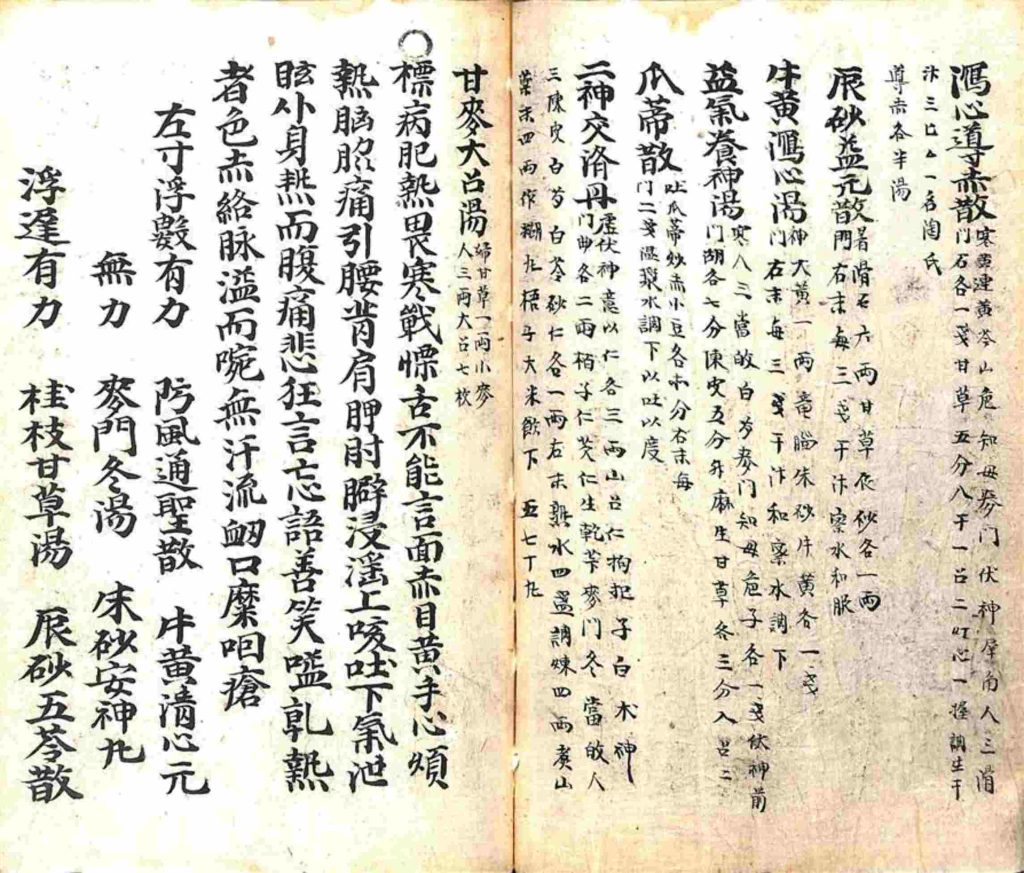 瀉心導赤散 寒黃連黃芩山危知母麥門伏神犀角人三滑
門石各一戔甘草五分入干一召二灯心一握調生干
汴三匕厶一名陶氏
導赤各半湯
辰砂益元散 暑滑石六兩甘草辰砂各一兩
門右末每三戔干汴蜜水和服
牛黃瀉心湯 神大黃一兩竜腦朱砂牛黃各一戔
門右末每三戔干汴和蜜水調下
益氣養神湯 寒人三當敀白芍麥門知母危子各一戔伏神前
門湖各七分陳皮五分升麻生甘草各三分入召二
瓜蒂散 吐瓜蒂炒赤小豆各等分右末每
門二戔溫漿水調下以吐以度
二神交濟丹 虛伏神薏以仁各三兩山召仁拘杞子白朮神
門曲各二兩栢子仁芡仁生乾芐麥門冬當敀人
三陳皮白芍白苓砂仁各一兩右末熟水四盞調煉四兩炙山
藥末四兩作糊丸梧子大米飮下 五七丁丸
甘麥大召湯 婦甘草一兩小麥
人三兩大召七枚
○
標病肥熱畏寒戰慄舌不能言面赤目黃手心煩
熱胸脇痛引腰背肩胛肘臂浸滛上咳吐下氣泄
眩仆身熱而腹痛悲狂言忘語善笑嗌乹熱
者色赤絡脉溢而啘無汗流衂口糜咽瘡
左寸浮數有力 防風通聖散 牛黃清心元
無力 麥門冬湯 朱砂安神丸
浮遲有力 桂枝甘草湯 辰砂五苓散